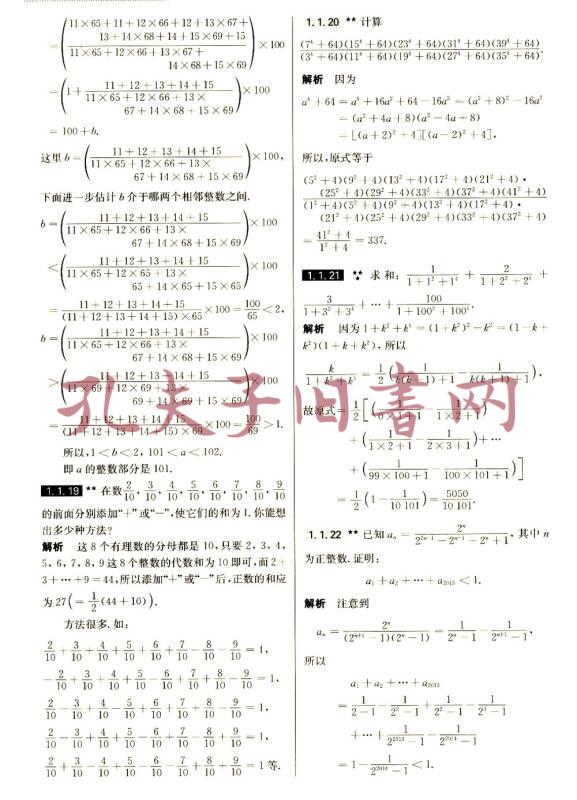 =(11×65+11+12×66+12+13×67+13+14×68+14+15×69+15)/(11×65+12×66+13×67+14×68+15×69)×100
=(1+(11+12+13+14+15)/(11×65+12×66+13×67+14×68+15×69))×100
=100+b.
这里b=((11+12+13+14+15)/(11×65+12×66+13×67+14×68+15×69))×100,
下面进一步估计b介于哪两个相邻整数之间.
b=((11+12+13+14+15)/(11×65+12×66+13×67+14×68+15×69))×100
<((11+12+13+14+15)/(11×65+12×65+13×65+14×65+15×65))×100
=(11+12+13+14+15)/((11+12+13+14+15)×65)×100=100/65<2,
b=((11+12+13+14+15)/(11×65+12×66+13×67+14×68+15×69))×100
>((11+12+13+14+15)/(11×69+12×69+13×69+14×69+15×69))×100
=(11+12+13+14+15)/((11+12+13+14+15)×69)×100=100/69>1.
所以,1<b<2, 101<a<102.
即a的整数部分是101.
1.1.19 ** 在数2/10, 3/10, 4/10, 5/10, 6/10, 7/10, 8/10, 9/10
的前面分别添加“+”或“—”,使它们的和为1.你能想
出多少种方法?
解析 这8个有理数的分母都是10,只要2, 3, 4,
5, 6, 7, 8, 9这8个整数的代数和为10即可,而2+
3+…+9=44,所以添加“+”或“—”后,正数的和应
为27(=1/2(44+10)).
方法很多.如:
2/10+3/10+4/10+5/10+6/10+7/10-8/10-9/10=1,
-2/10+3/10+4/10+5/10+6/10-7/10-8/10+9/10=1,
2/10+3/10-4/10+5/10-6/10-7/10+8/10+9/10=1等.
1.1.20 ** 计算
(7⁴+64)(15⁴+64)(23⁴+64)(31⁴+64)(39⁴+64)/(3⁴+64)(11⁴+64)(19⁴+64)(27⁴+64)(35⁴+64).
解析 因为
a⁴+64=a⁴+16a²+64-16a²=(a²+8)²-16a²
=(a²+4a+8)(a²-4a+8)
=[(a+2)²+4][(a-2)²+4],
所以,原式等于
(5²+4)(9²+4)(13²+4)(17²+4)(21²+4)·
(25²+4)(29²+4)(33²+4)(37²+4)(41²+4)
/(1²+4)(5²+4)(9²+4)(13²+4)(17²+4)·
(21²+4)(25²+4)(29²+4)(33²+4)(37²+4)
=(41²+4)/(1²+4)=337.
1.1.21 ** 求和: 1/(1+1²+1⁴)+2/(1+2²+2⁴)+
3/(1+3²+3⁴)+…+100/(1+100²+100⁴).
解析 因为1+k²+k⁴=(1+k²)²-k²=(1-k+
k²)(1+k+k²),所以
k/(1+k²+k⁴)=1/2(1/(k(k-1)+1)-1/(k(k+1)+1)),
故原式=1/2[(1/(0×1+1)-1/(1×2+1))
+(1/(1×2+1)-1/(2×3+1))+…
+(1/(99×100+1)-1/(100×101+1))]
=1/2(1-1/10 101)=5050/10 101.
1.1.22 ** 已知aₙ=2ⁿ/(2²ⁿ⁺¹-2ⁿ⁺¹-2ⁿ+1),其中n
为正整数.证明:
a₁+a₂+…+a₂₀₁₃<1.
解析 注意到
aₙ=2ⁿ/((2ⁿ⁺¹-1)(2ⁿ-1))=1/(2ⁿ-1)-1/(2ⁿ⁺¹-1).
所以
a₁+a₂+…+a₂₀₁₃
=1/(2-1)-1/(2²-1)+1/(2²-1)-1/(2³-1)
+…+1/(2²⁰¹³-1)-1/(2²⁰¹⁴-1)
=1-1/(2²⁰¹⁴-1)<1.
孔夫子旧书网